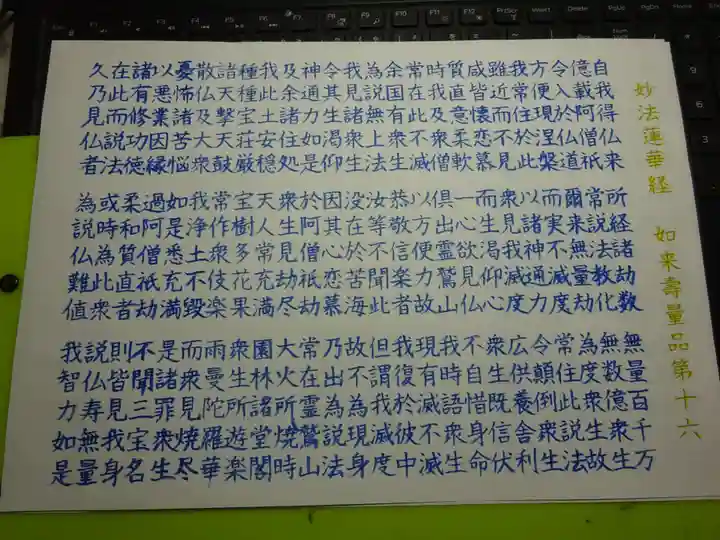 妙法蓮華経　如来壽量品第十六
自我得仏来　所経諸劫数　無量百千万
億載阿僧祇　常説法教化　無数億衆生
令入於仏道　爾来無量劫　為度衆生故
方便現涅槃　而実不滅度　常住此説法
我常住於此　以諸神通力　令顛倒衆生
雖近而不見　衆見我滅度　広供養舎利
咸皆懐恋慕　而生渇仰心　衆生既信伏
質直意柔軟　一心欲見仏　不自惜身命
時我及衆僧　俱出霊鷲山　我時語衆生
常在此不滅　以方便力故　現有滅不滅
余国有衆生　恭敬信楽者　我復於彼中
為説無上法　汝等不聞此　但謂我滅度
我見諸衆生　没在於苦海　故不為現身
令其生渇仰　因其心恋慕　乃出為説法
神通力如是　於阿僧祇劫　常在霊鷲山
及余諸住処　衆生見劫尽　大火所焼時
我此土安穏　天人常充満　園林諸堂閣
種種宝荘厳　宝樹多花果　衆生所遊楽
諸天撃天鼓　常作衆伎楽　雨曼陀羅華
散仏及大衆　我浄土不毀　而衆見焼尽
憂怖諸苦悩　如是悉充満　是諸罪衆生
以悪業因縁　過阿僧祇劫　不聞三宝名
諸有修功徳　柔和質直者　則皆見我身
在此而説法　或時為此衆　説仏寿無量
久乃見仏者　為説仏難値　我智力如是